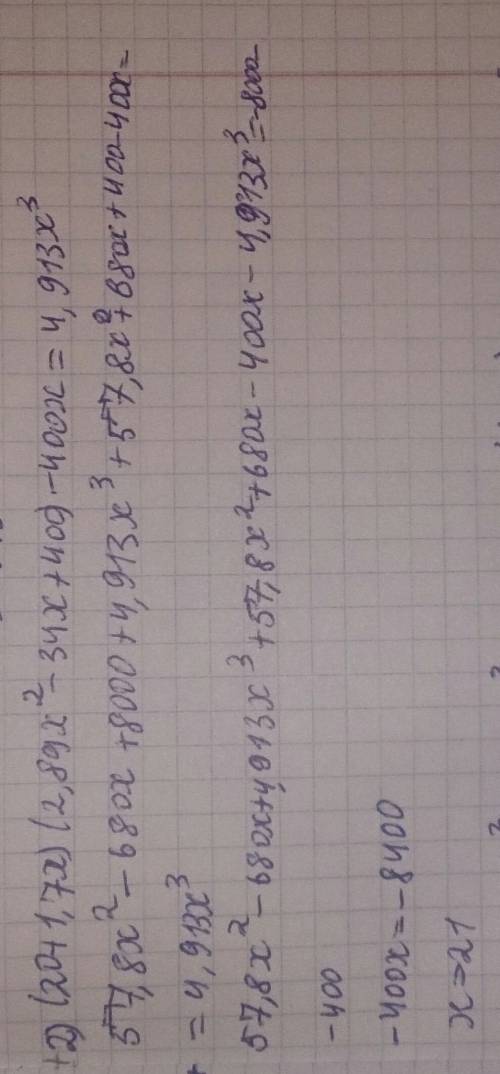 2) (20+1,7x)(2,89x² - 34x + 400 - 400x = 4,913x³
57,8x² - 680x + 8000 + 4,913x³ + 57,8x² + 680x + 400 - 400x =
= 4,913x³
57,8x² - 680x + 4,913x³ + 57,8x² + 680x - 400x - 4,913x³ = -8000
-400
-400x = -8400
x = 21